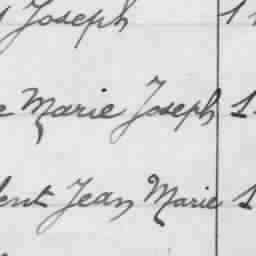 Joseph 1
e Marie Joseph 1
ent Jean Marie 1